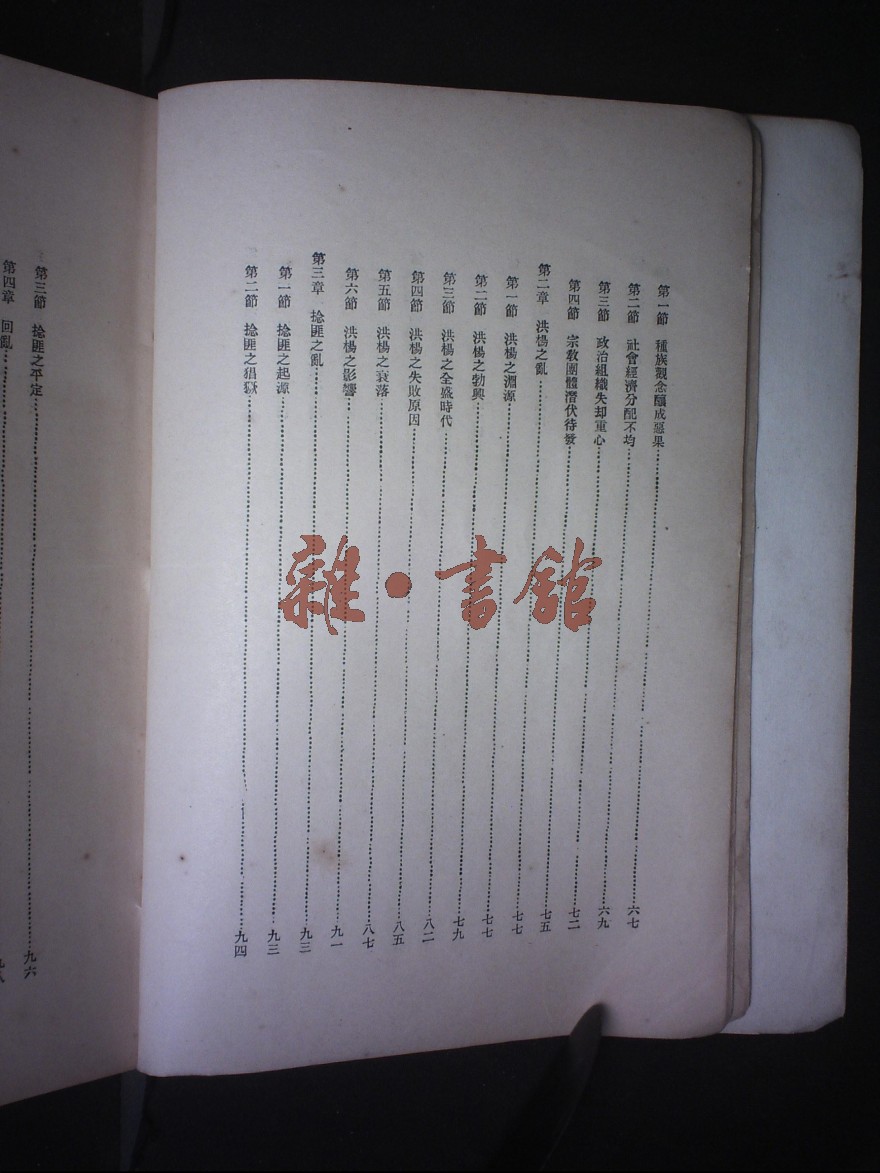 第一節 種族觀念釀成惡果……六七
第二節 社會經濟分配不均……六九
第三節 政治組織失却重心……七二
第四節 宗教團體潛伏待發……七五
第二章 洪楊之亂……七七
第一節 洪楊之淵源……七七
第二節 洪楊之勃興……七九
第三節 洪楊之全盛時代……八二
第四節 洪楊之失敗原因……八五
第五節 洪楊之衰落……八七
第六節 洪楊之影響……九一
第三章 捻匪之亂……九三
第一節 捻匪之起源……九三
第二節 捻匪之猖獗……九四
第三節 捻匪之平定……九六
第四章 回亂……
雜·書館